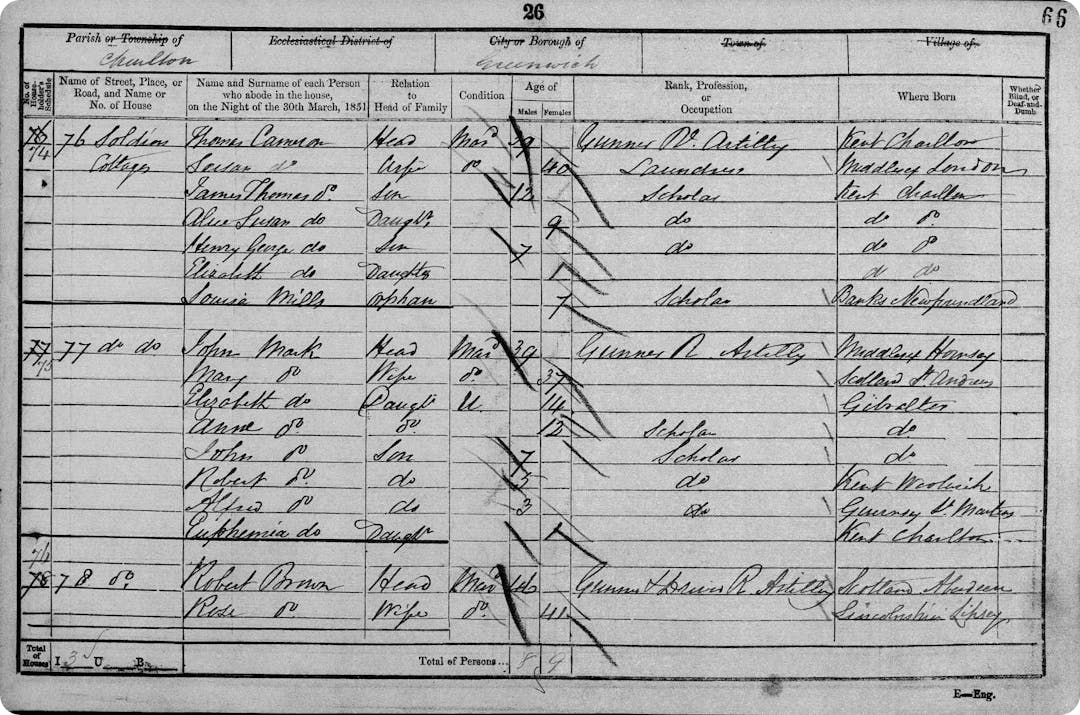 26
66
Parish or Township of Ecclesiastical District of City or Borough of Town of Village of
Charlton Greenwich
No. of House-holder's Schedule Name of Street, Place, or Road, and Name or No. of House Name and Surname of each Person who abode in the house, on the Night of the 30th March, 1851 Relation to Head of Family Condition Age of Males Females Rank, Profession, or Occupation Where Born Whether Blind, or Deaf-and-Dumb
76 74 76 Soldiers Thomas Cameron Head Mard 39 Gunner Rl. Artilly Kent Charlton
Cottages Susan do Wife do 40 Laundress Middlesex London
James Thomas do Son 12 Scholar Kent Charlton
Alice Susan do Daughtr 9 do do do
Henry George do Son 7 do do do
Elizabeth do Daughter d do
Louisa Mills orphan 7 Scholar Banks Newfoundland
77 75 77 do do John Mark Head Mard 39 Gunner R Artilly Middlesex Hornsey
Mary do Wife do 37 Scotland St Andrews
Elizabeth do Daughtr U. 14 Gibraltar
Anne do do 12 Scholar do
John do Son 7 Scholar do
Robert do do 5 do Kent Woolwich
Alfred do do 3 do Guernsey St Martins
Euphemia do Daughtr 1 Kent Charlton
78 76 78 do Robert Brown Head Mard 46 Gunner & Driver R Artilley Scotland Aberdeen
Rose do Wife do 41 Lincolnshire
Total of Houses I 3 U B Total of Persons... 8 9
E—Eng.